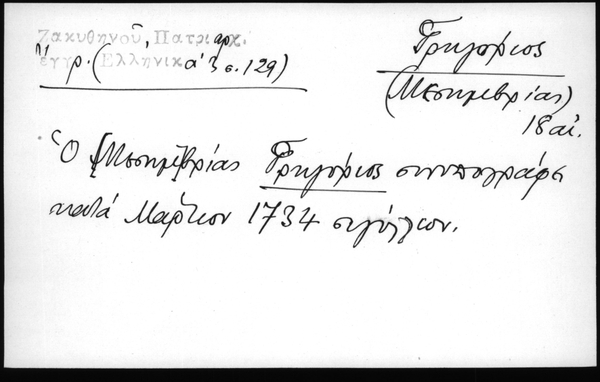 Ζακυθηνοῦ, Πατριαρχ.
ἔγγρ. (Ἑλληνικά 3 σ. 129)
Γρηγόριος
(Μεσημβρίας)
18 αἰ.
Ὁ Μεσημβρίας Γρηγόριος συνυπογράφει
κατά Μάρτιον 1734 σιγίλλιον.